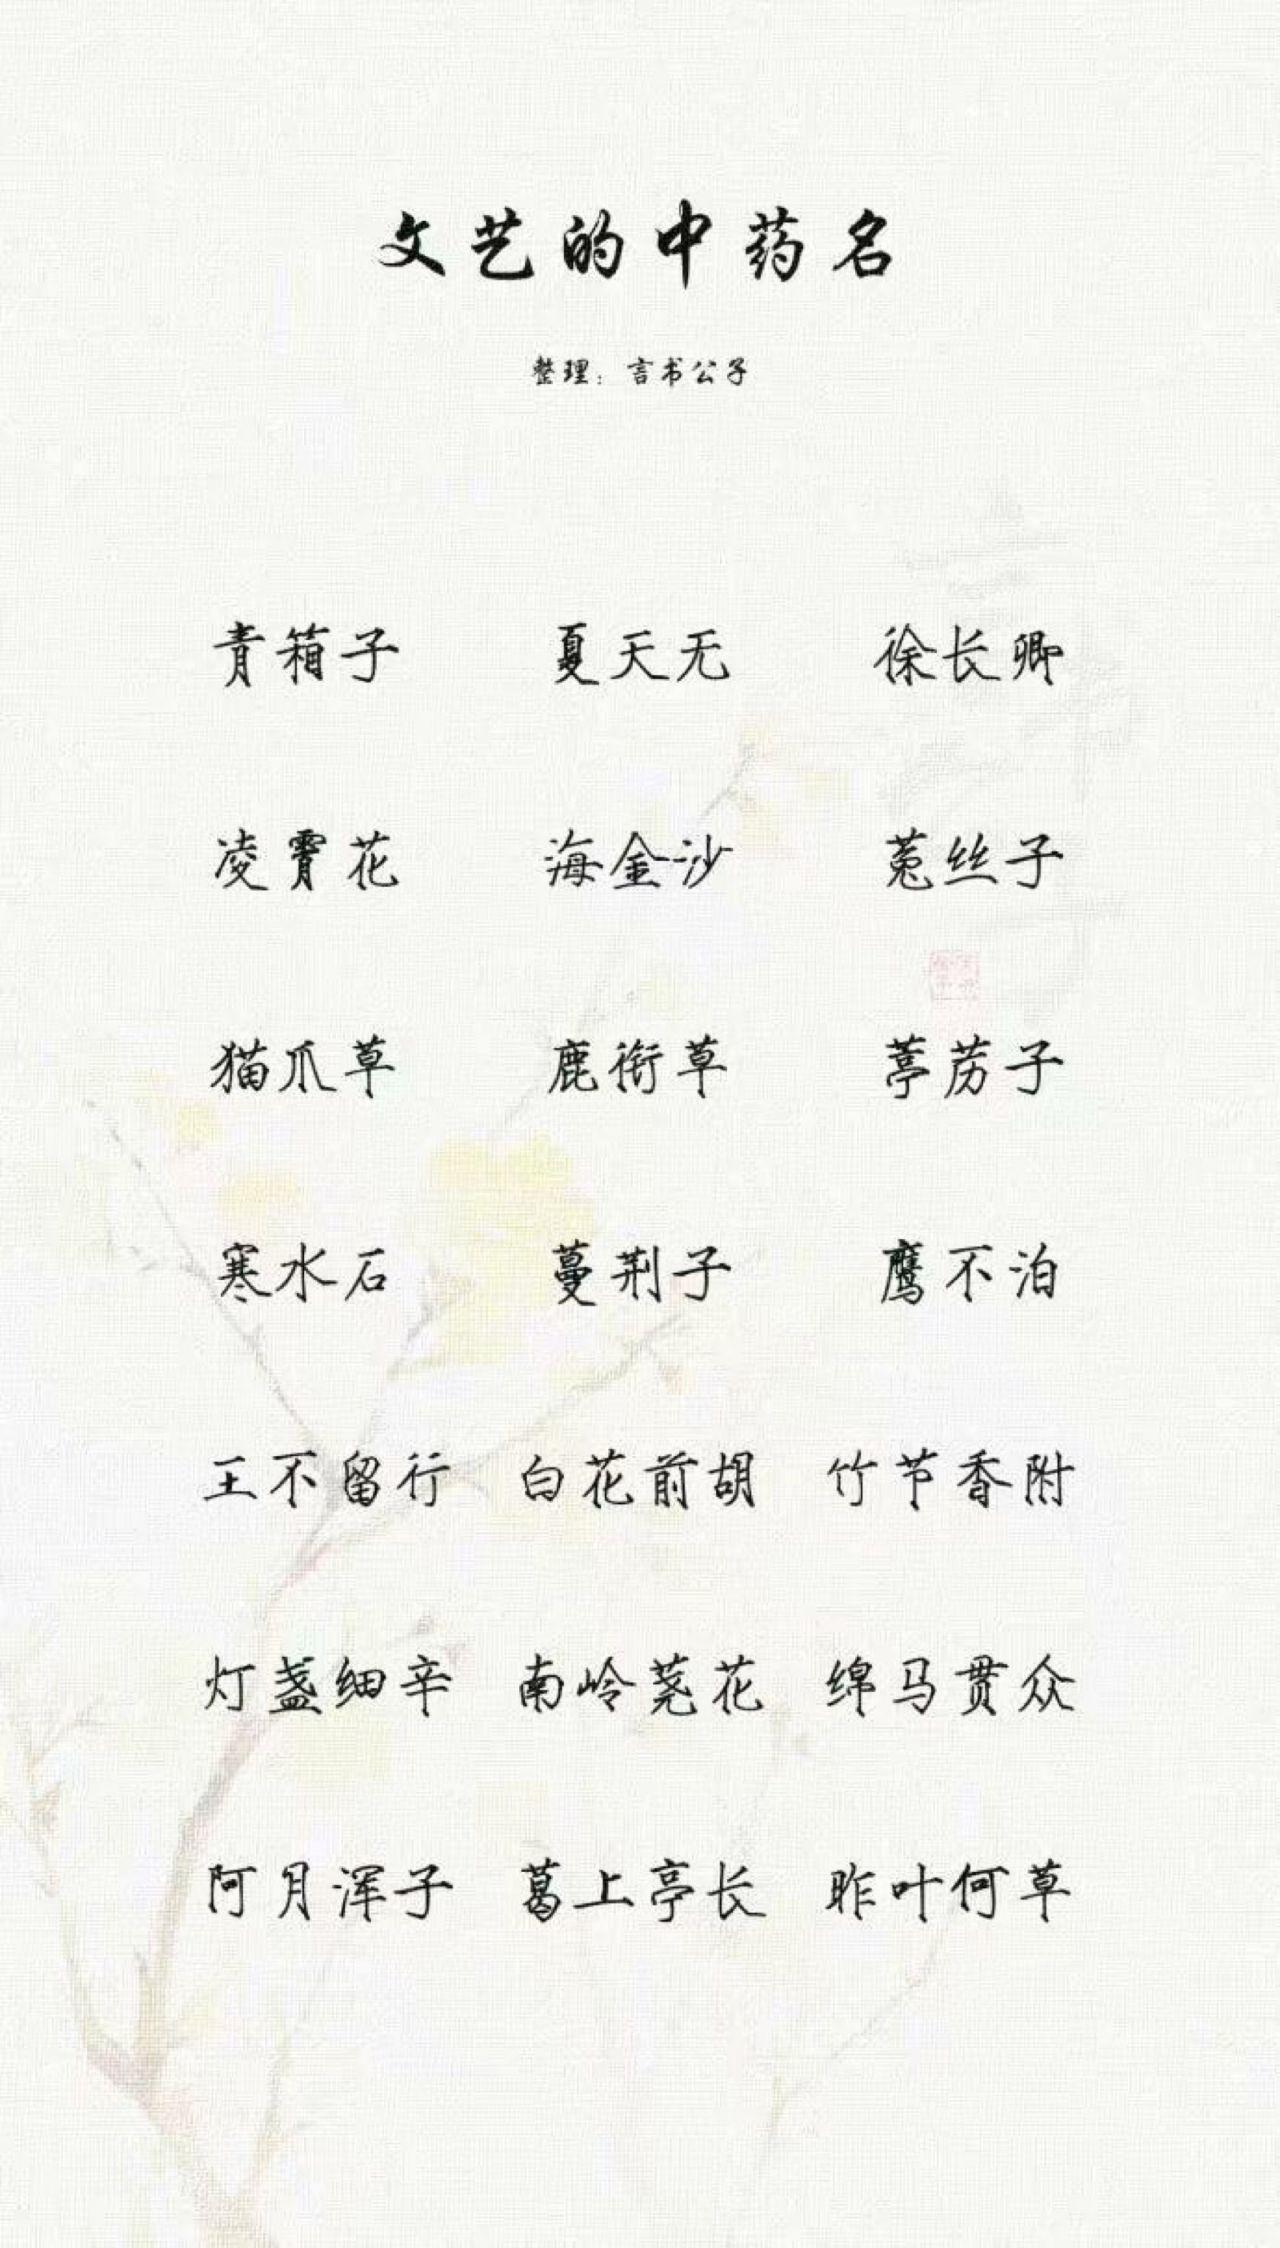 文艺的中药名
整理：言书公子
青箱子 夏天无 徐长卿
凌霄花 海金沙 菟丝子
猫爪草 鹿衔草 葶苈子
寒水石 蔓荆子 鹰不泊
王不留行 白花前胡 竹节香附
灯盏细辛 南岭荛花 绵马贯众
阿月浑子 葛上亭长 昨叶何草